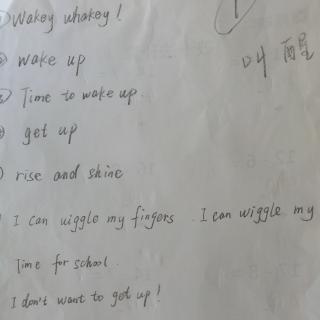 ① Wakey whakey!
叫醒
wake up
Time to wake up.
get up
rise and shine
I can uiggle my fingers. I can wiggle my
Time for school.
I don't want to get up!